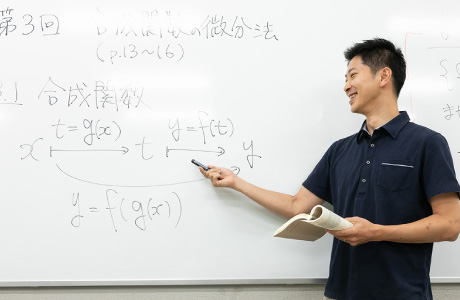 第3回 合成関数の微分法
(p.13~16)
合成関数
t=g(x) y=f(t)
x t y
y=f(g(x))